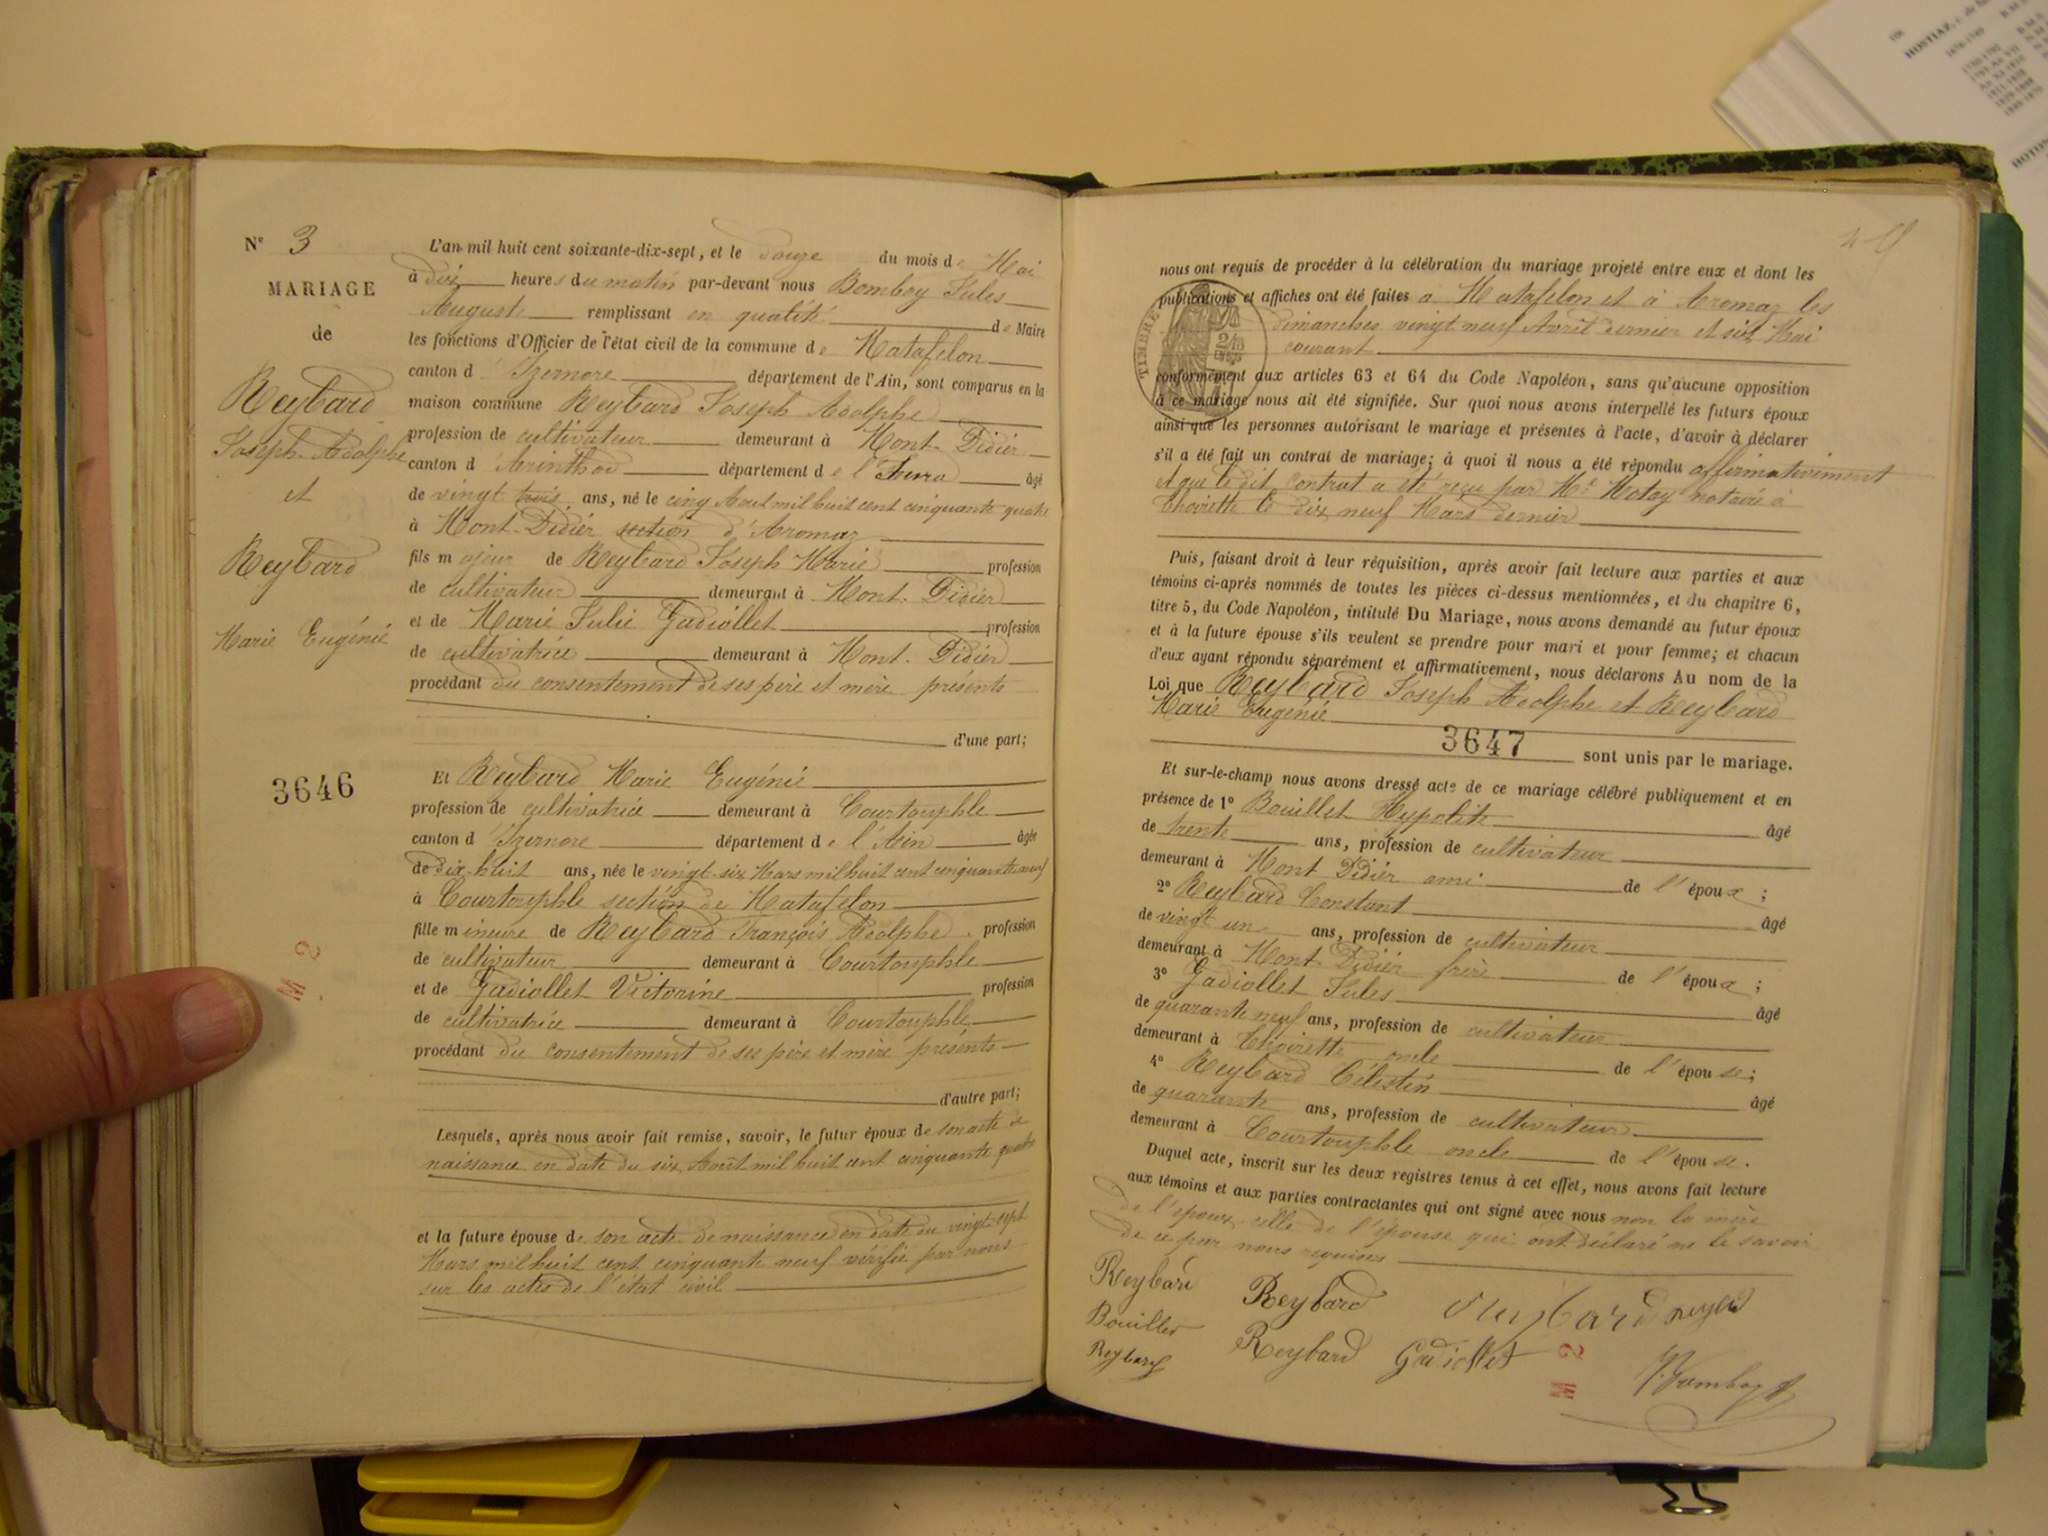 Nº 3
MARIAGE
de
Reybard
Joseph Adolphe
et
Reybard
Marie Eugénie
3646
M 2
L'an mil huit cent soixante-dix-sept, et le douze du mois de Mai
à dix heures du matin par-devant nous Bomboy Jules
Auguste remplissant en qualité de Maire
les fonctions d'Officier de l'état civil de la commune de Matafelon
canton d'Izernore département de l'Ain, sont comparus en la
maison commune Reybard Joseph Adolphe
profession de cultivateur demeurant à Mont-Didier
canton d'Arinthod département de l Jura âgé
de vingt trois ans, né le cinq Aout mil huit cent cinquante quatre
à Mont-Didier section d'Aromaz
fils majeur de Reybard Joseph Marie profession
de cultivateur demeurant à Mont-Didier
et de Marie Julie Gadiollet profession
de cultivatrice demeurant à Mont-Didier
procédant du consentement de ses père et mère présents
d'une part;
Et Reybard Marie Eugénie
profession de cultivatrice demeurant à Courtouphle
canton d'Izernore département de l'Ain âgée
de dix-huit ans, née le vingt-six Mars mil huit cent cinquante neuf
à Courtouphle section de Matafelon
fille mineure de Reybard François Adolphe profession
de cultivateur demeurant à Courtouphle
et de Gadiollet Victorine profession
de cultivatrice demeurant à Courtouphle
procédant du consentement de ses père et mère présents
d'autre part;
Lesquels, après nous avoir fait remise, savoir, le futur époux de son acte de
naissance en date du six Août mil huit cent cinquante quatre
et la future épouse de son acte de naissance en date du vingt-sept
Mars mil huit cent cinquante neuf vérifié par nous
sur les actes de l'état civil
nous ont requis de procéder à la célébration du mariage projeté entre eux et dont les
publications et affiches ont été faites à Matafelon et à Aromaz les
dimanches vingt neuf Avril dernier et six Mai
courant
TIMBRE
conformément aux articles 63 et 64 du Code Napoléon, sans qu'aucune opposition
à ce mariage nous ait été signifiée. Sur quoi nous avons interpellé les futurs époux
ainsi que les personnes autorisant le mariage et présentes à l'acte, d'avoir à déclarer
s'il a été fait un contrat de mariage; à quoi il nous a été répondu affirmativement
et que le dit contrat a été reçu par Mᵉ Motay notaire à
Thoirette le dix neuf Mars dernier
Puis, faisant droit à leur réquisition, après avoir fait lecture aux parties et aux
témoins ci-après nommés de toutes les pièces ci-dessus mentionnées, et du chapitre 6,
titre 5, du Code Napoléon, intitulé Du Mariage, nous avons demandé au futur époux
et à la future épouse s'ils veulent se prendre pour mari et pour femme; et chacun
d'eux ayant répondu séparément et affirmativement, nous déclarons Au nom de la
Loi que Reybard Joseph Adolphe et Reybard
Marie Eugénie
3647 sont unis par le mariage.
Et sur-le-champ nous avons dressé acte de ce mariage célébré publiquement et en
présence de 1º Bouillet Hypolite âgé
de trente ans, profession de cultivateur
demeurant à Mont Didier ami de l'époux;
2º Reybard Constant âgé
de vingt un ans, profession de cultivateur
demeurant à Mont Didier frère de l'époux;
3º Gadiollet Jules âgé
de quarante neuf ans, profession de cultivateur
demeurant à Thoirette oncle de l'épouse;
4º Reybard Célestin âgé
de quarante ans, profession de cultivateur
demeurant à Courtouphle oncle de l'épouse.
Duquel acte, inscrit sur les deux registres tenus à cet effet, nous avons fait lecture
aux témoins et aux parties contractantes qui ont signé avec nous non la mère
de l'époux celle de l'épouse qui ont déclaré ne le savoir
de ce par nous requises
Reybard Reybard
Bouillet Reybard Gadiollet
Reybard
M 2